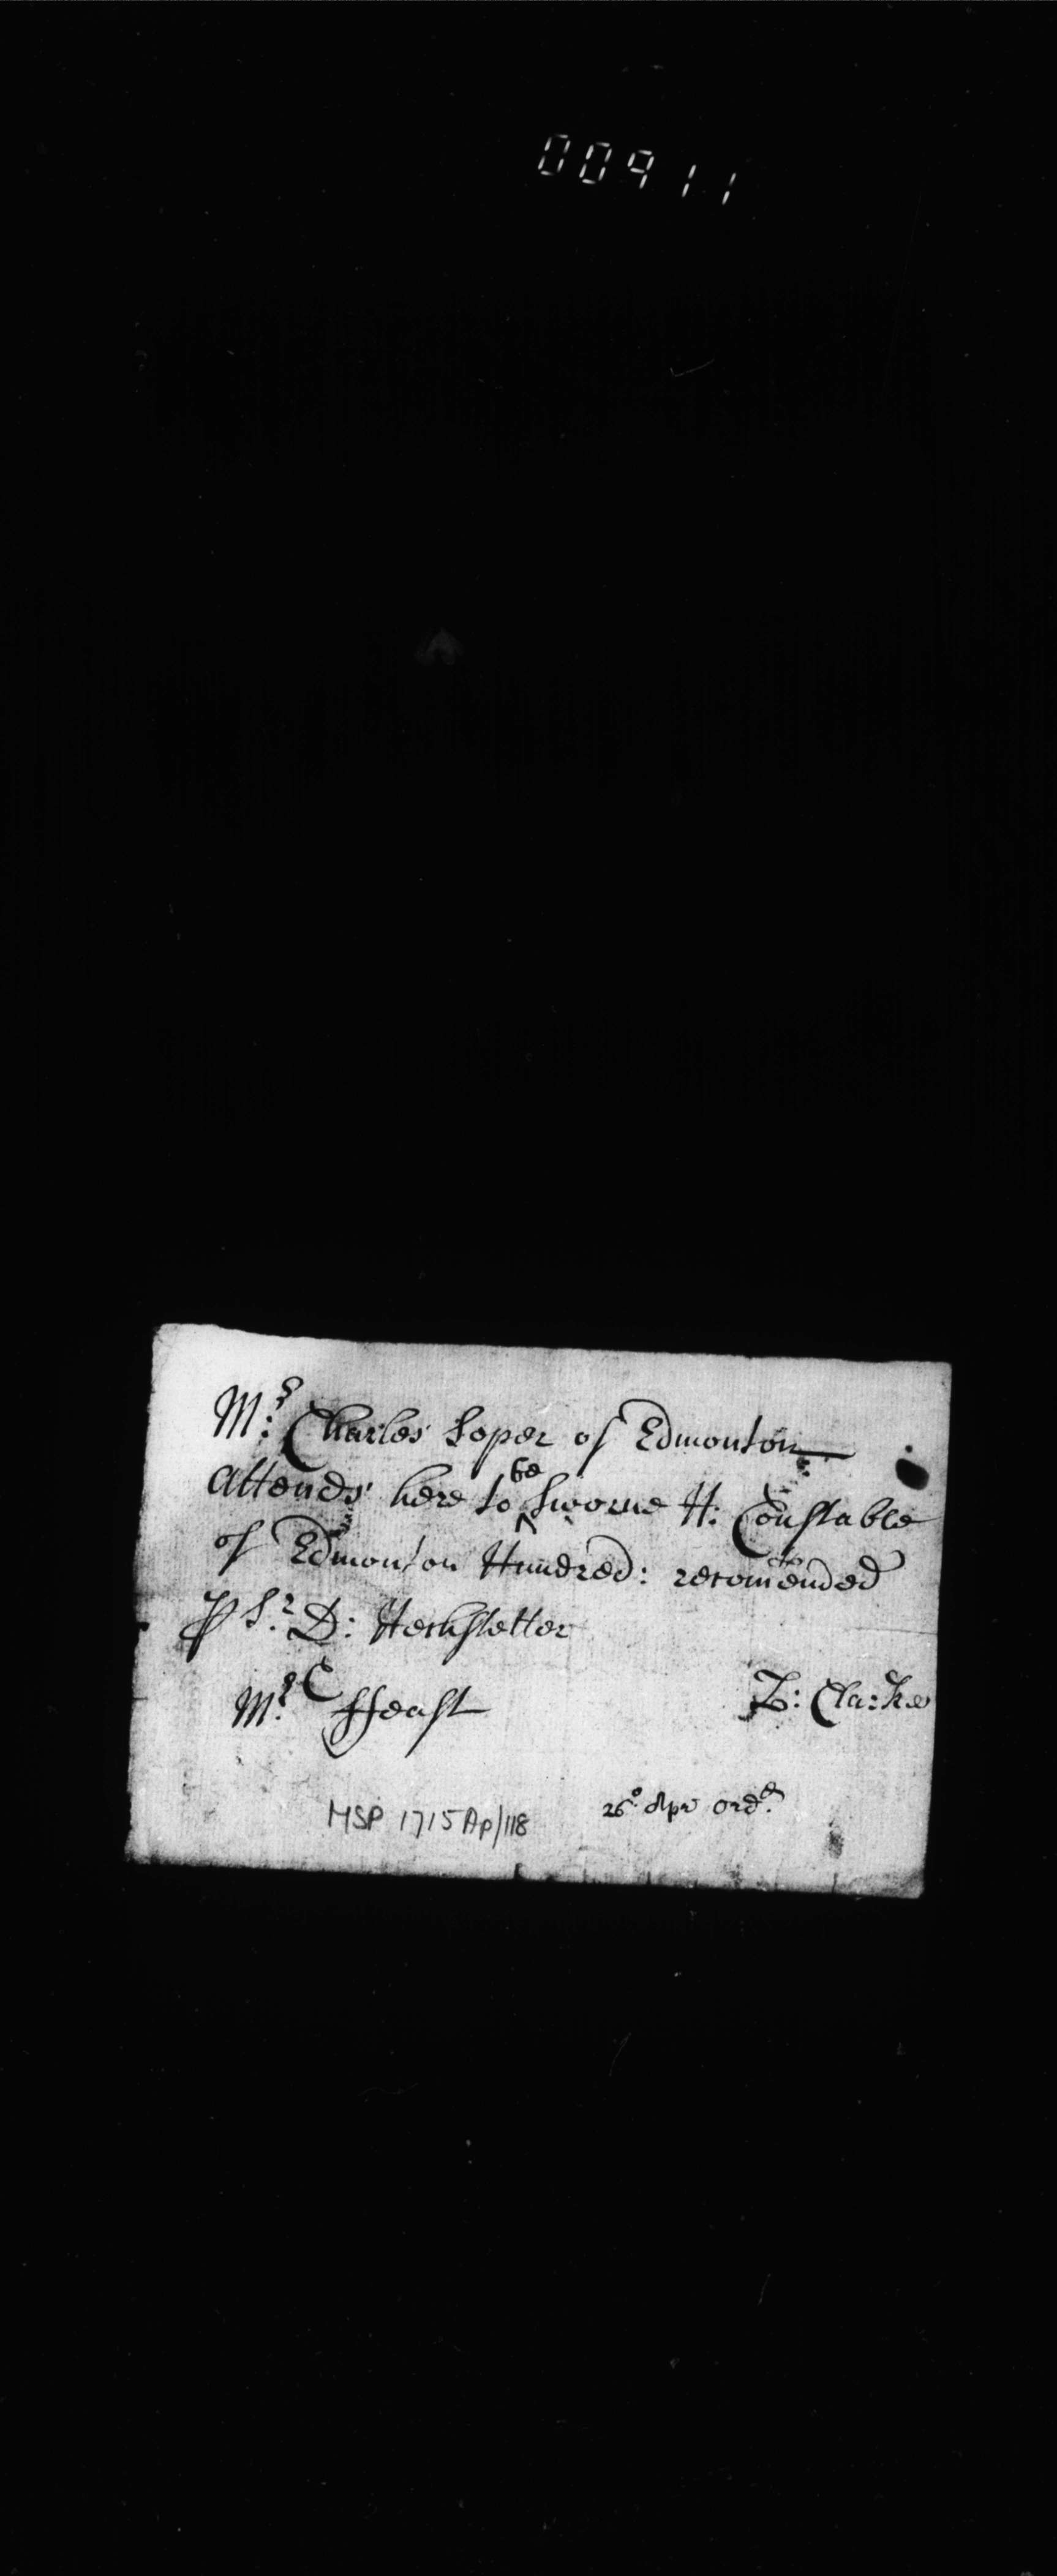 00911
Mr: Charles Soper of Edmonton
attends here to be Sworne H: Constable
of Edmonton Hundred: recom̃ended
P Sr. D: Hechstetter
Mr. C ffeast
Z: Clarke
26o. Apr ord.
MSP 1715 Ap/118